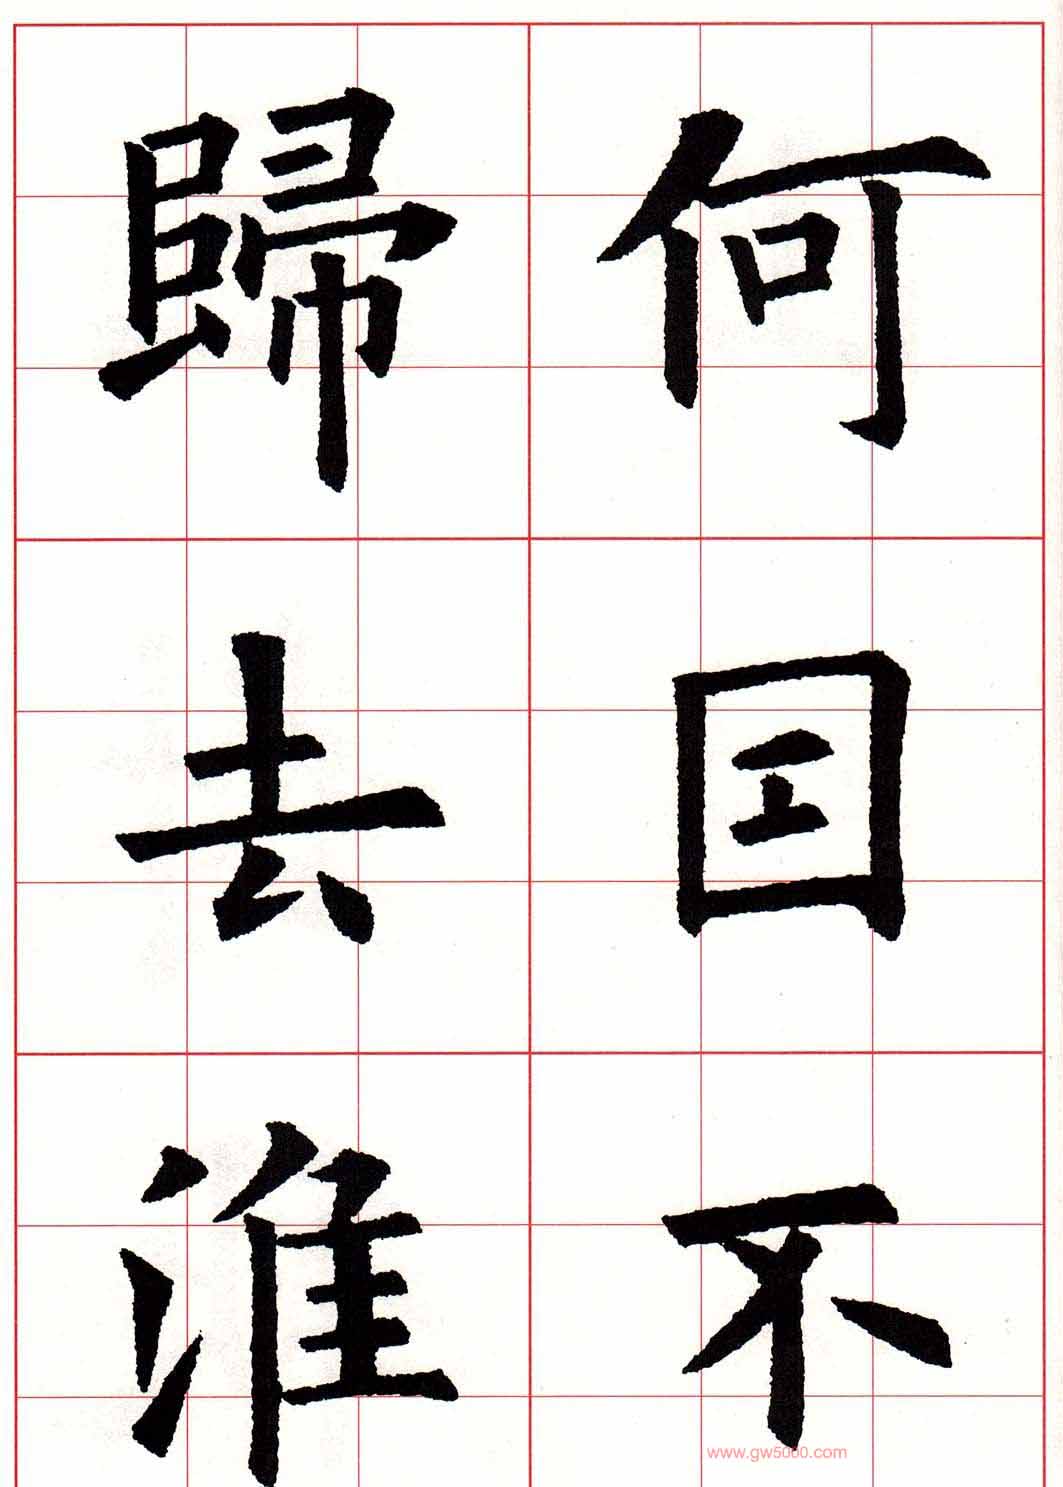 何囙不
歸去淮
www.gw5000.com